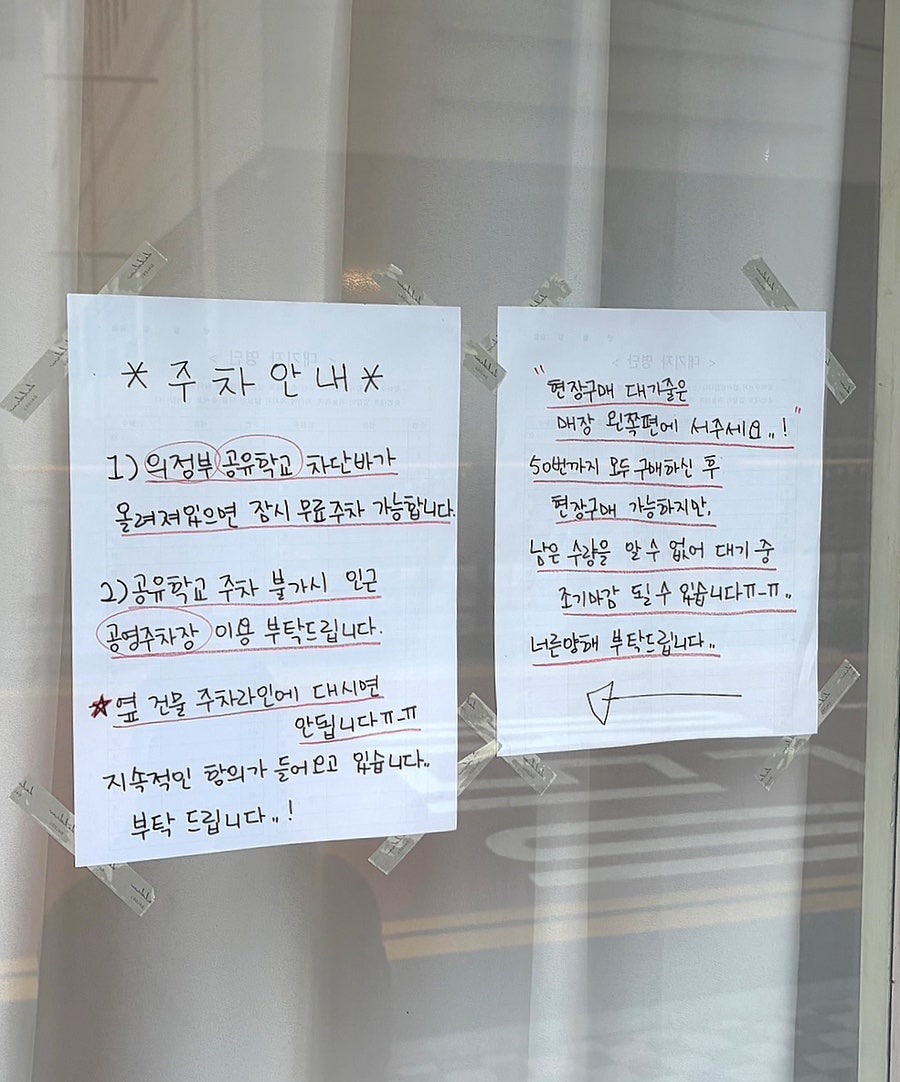 * 주차안내 *
1) 의정부 공유학교 차단바가
올려져있으면 잠시 무료주차 가능합니다.
2) 공유학교 주차 불가시 인근
공영주차장 이용 부탁드립니다.
☆옆 건물 주차라인에 대시면
안됩니다ㅠ_ㅠ
지속적인 항의가 들어오고 있습니다..
부탁 드립니다..!
"현장구매 대기줄은
매장 왼쪽편에 서주세요..!"
50번까지 모두 구매하신 후
현장구매 가능하지만,
남은 수량을 알 수 없어 대기 중
조기마감 될 수 있습니다ㅠ_ㅠ..
너른양해 부탁드립니다..
< 대기자 명단 >
< 대기자 명단 >